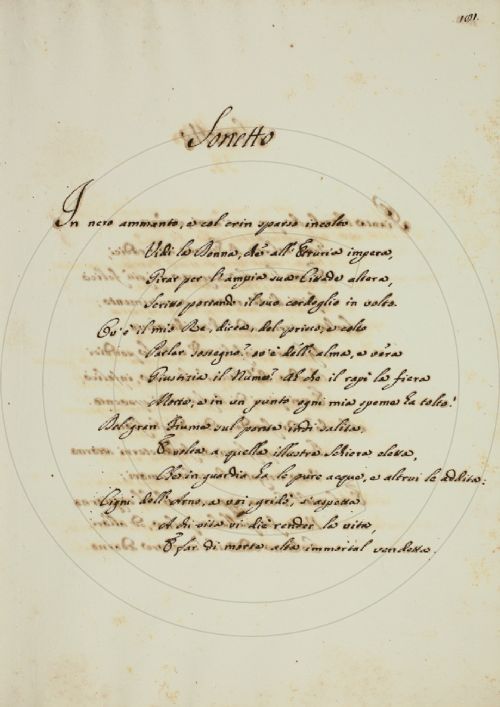 101.
Sonetto
In nero ammanto, e col crin sparso incolto
Vidi la Donna, che all'Etruria impera,
Girar per l'ampia sua Cittade altera,
Scritto portando il suo cordoglio in volto.
Ov'è il mio Re, dicea, del prisco, e colto
Parlar sostegno? ov'è dell'alma, e vera
Giustizia il Nume? Ah che il rapì la fiera
Morte, e in un punto ogni mia speme ha tolto!
Del gran Fiume sul ponte indi salita,
E volta a quella illustre Schiera eletta,
Che in guardia ha le pure acque, e altrui le addita:
Cigni dell'Arno, a voi, gridò, s'aspetta
A chi vita vi diè render la vita,
E far di morte alta immortal vendetta.